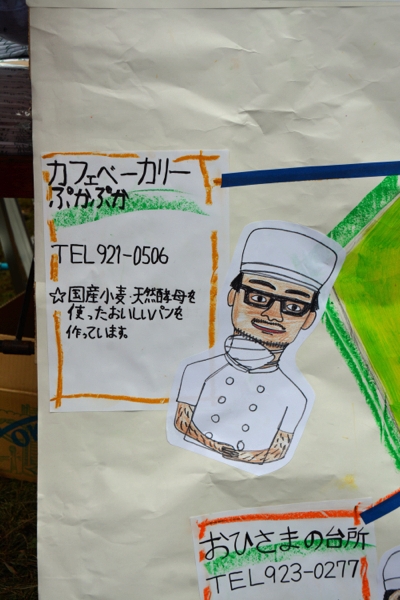 カフェベーカリー
ぷかぷか
TEL921-0506
☆国産小麦・天然酵母を
使ったおいしいパンを
作っています。
おひさまの台所
TEL923-0277